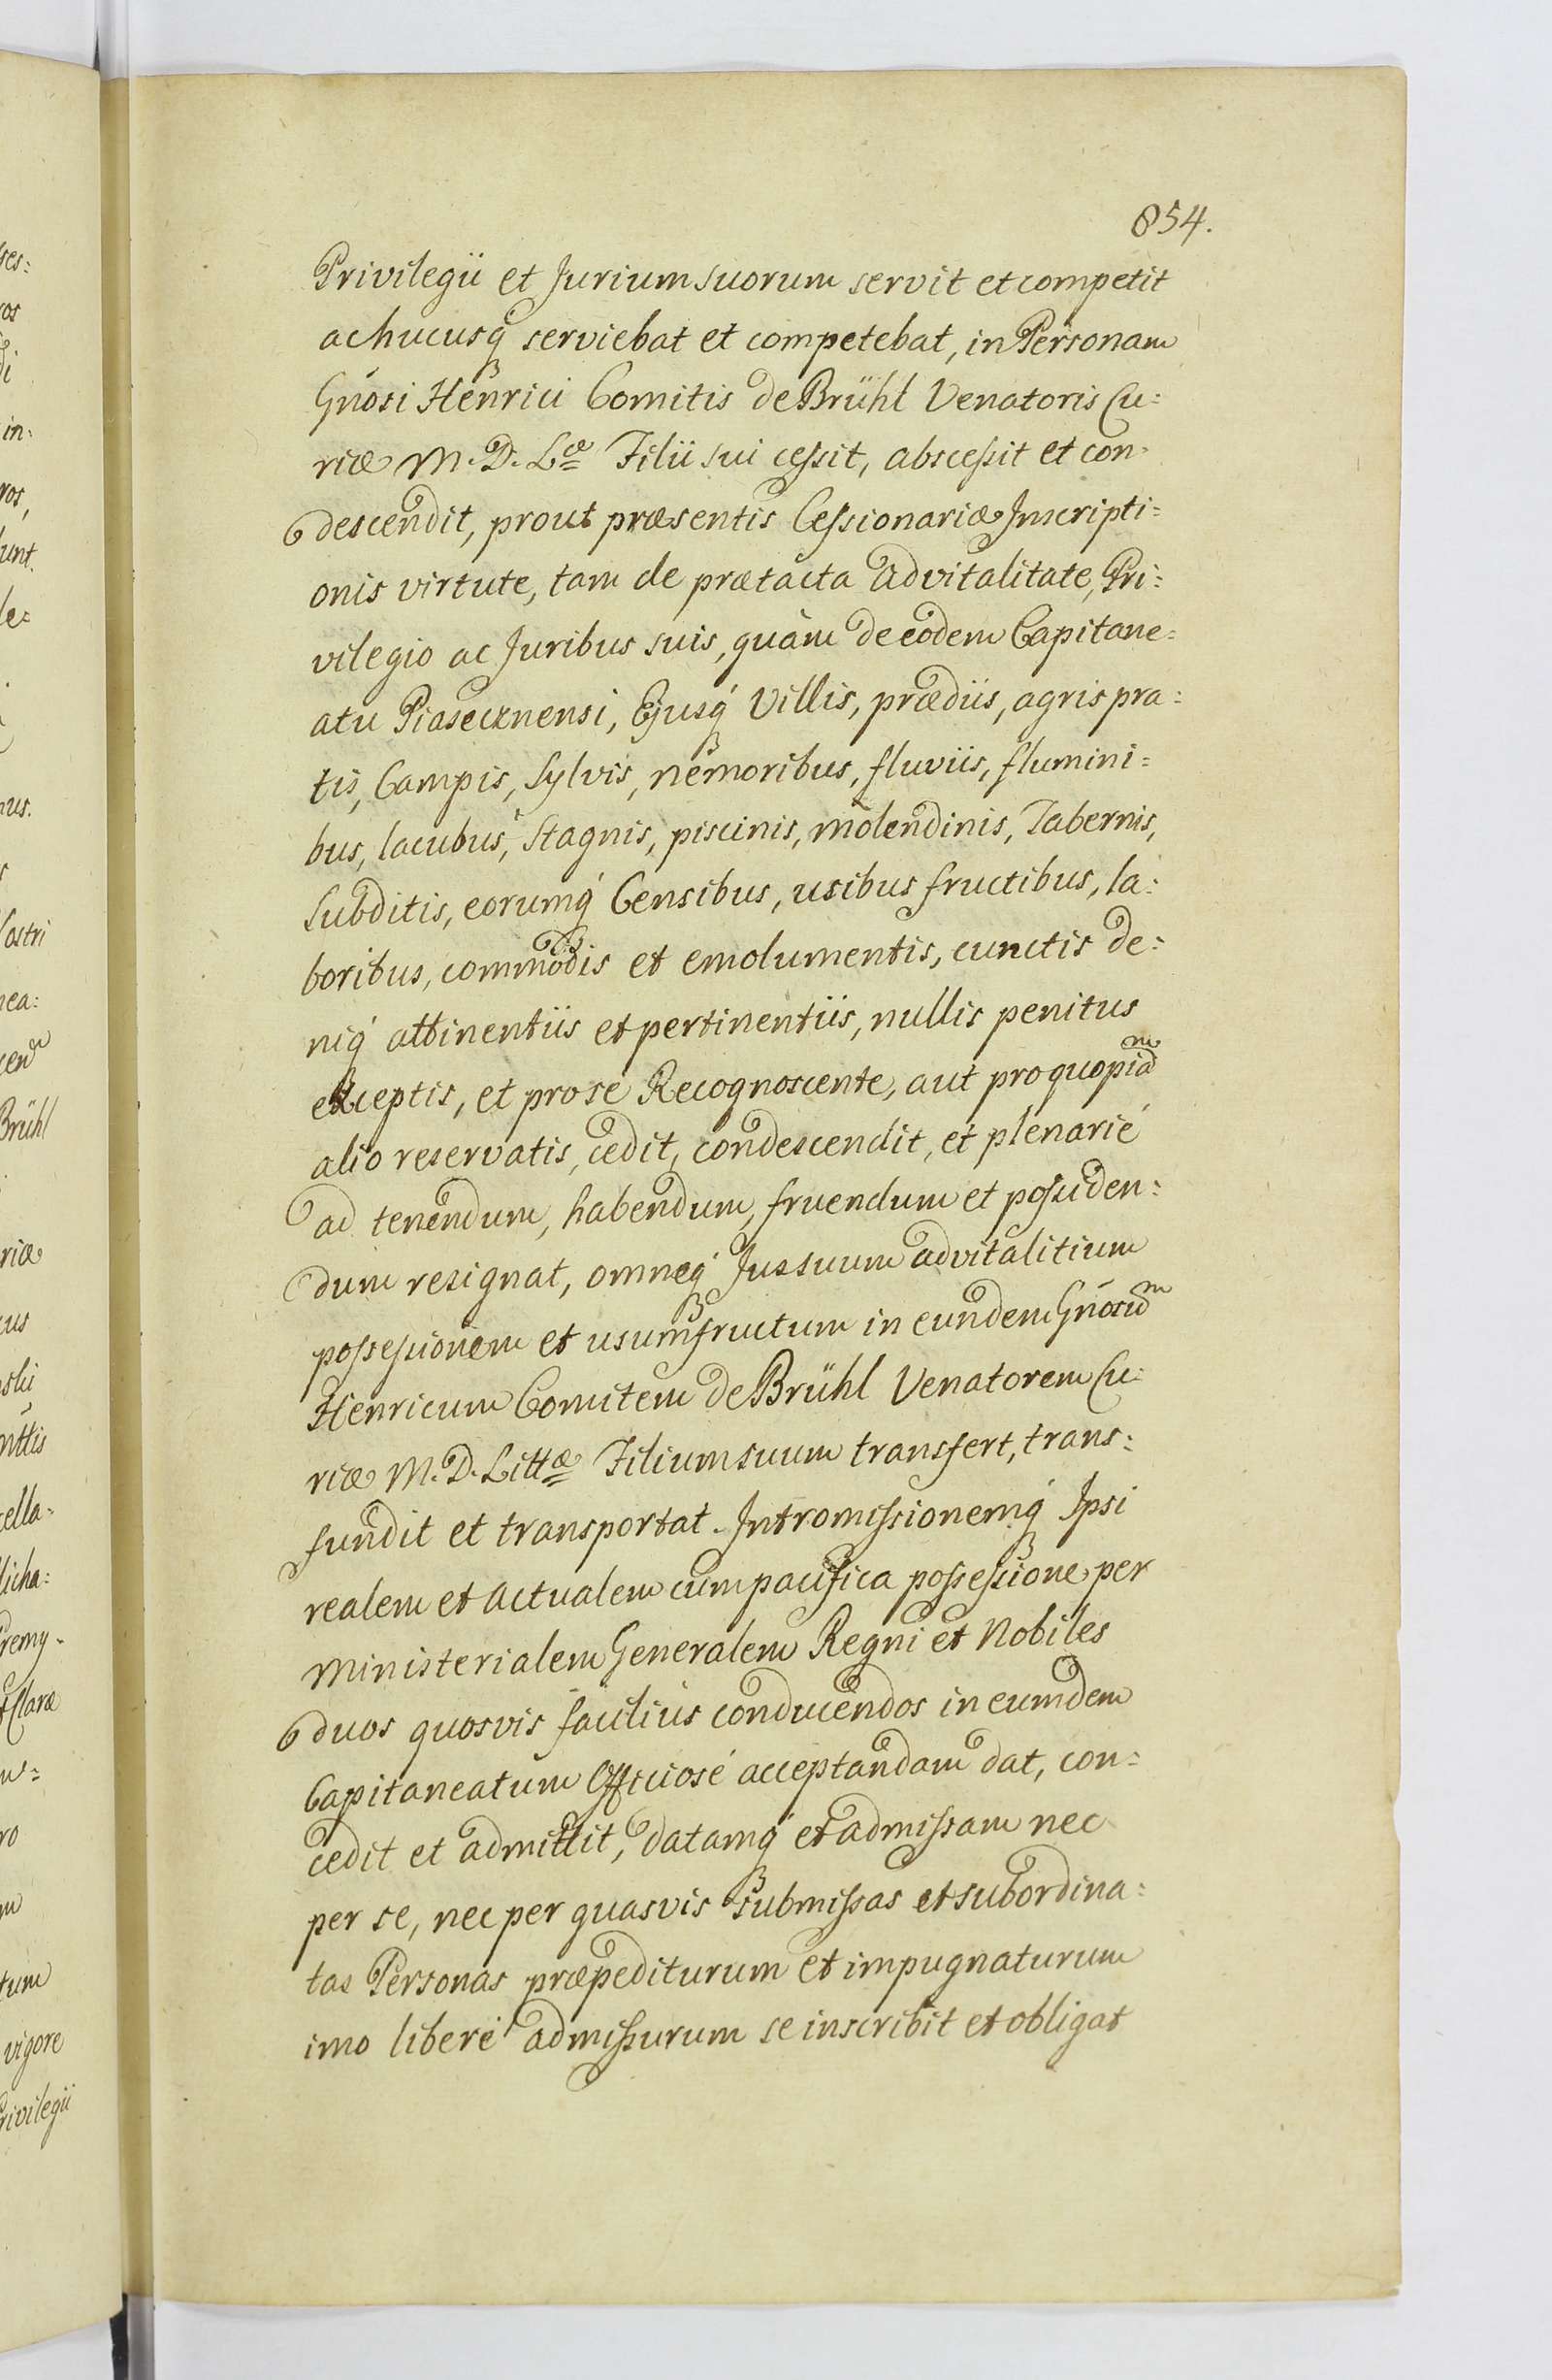 854.
Privilegii et Jurium suorum servit et competit
ac hucusq́ serviebat et competebat, in Personam
Gnosi Henrici Comitis de Brühl Venatoris Cu:
riæ M. D. Læ Filii sui cessit, abscessit et con:
descendit, prout præsentis Cessionariæ Inscripti:
onis virtute, tam de prætacta advitalitate, Pri:
vilegio ac Juribus suis, quàm de eodem Capitane:
atu Piasecznensi, Ejusq́ Villis, prædiis, agris pra:
tis, Campis, Sylvis, nemoribus, fluviis, flumini:
bus, lacubus, Stagnis, piscinis, molendinis, Tabernis,
Subditis, eorumq́ Censibus, usibus fructibus, la:
boribus, commodis et emolumentis, cunctis de:
niq́ attinentiis et pertinentiis, nullis penitus
exceptis, et pro se Recognoscente, aut pro quopiam
alio reservatis, cedit, condescendit, et plenarié
ad tenendum, habendum, fruendum et possiden:
dum resignat, omneq́ Jus suum advitalitium
possessionem et usumfructum in eundem Gnosum
Henricum Comitem de Brühl Venatorem Cu:
riæ M. D. Littæ Filium suum transfert, trans:
fundit et transportat. Intromissionemq́ Ipsi
realem et actualem cum pacifica possessione per
Ministerialem Generalem Regni et Nobiles
duos quosvis faciliús conducendos in eumdem
Capitaneatum Officiosé acceptandam dat, con:
cedit et admittit, datamq́ et admissam nec
per se, nec per quasvis submissas et subordina:
tas Personas præpediturum et impugnaturum
imo liberé admissurum se inscribit et obligat
ostri
Brühl
riæ
vigore
rivilegii